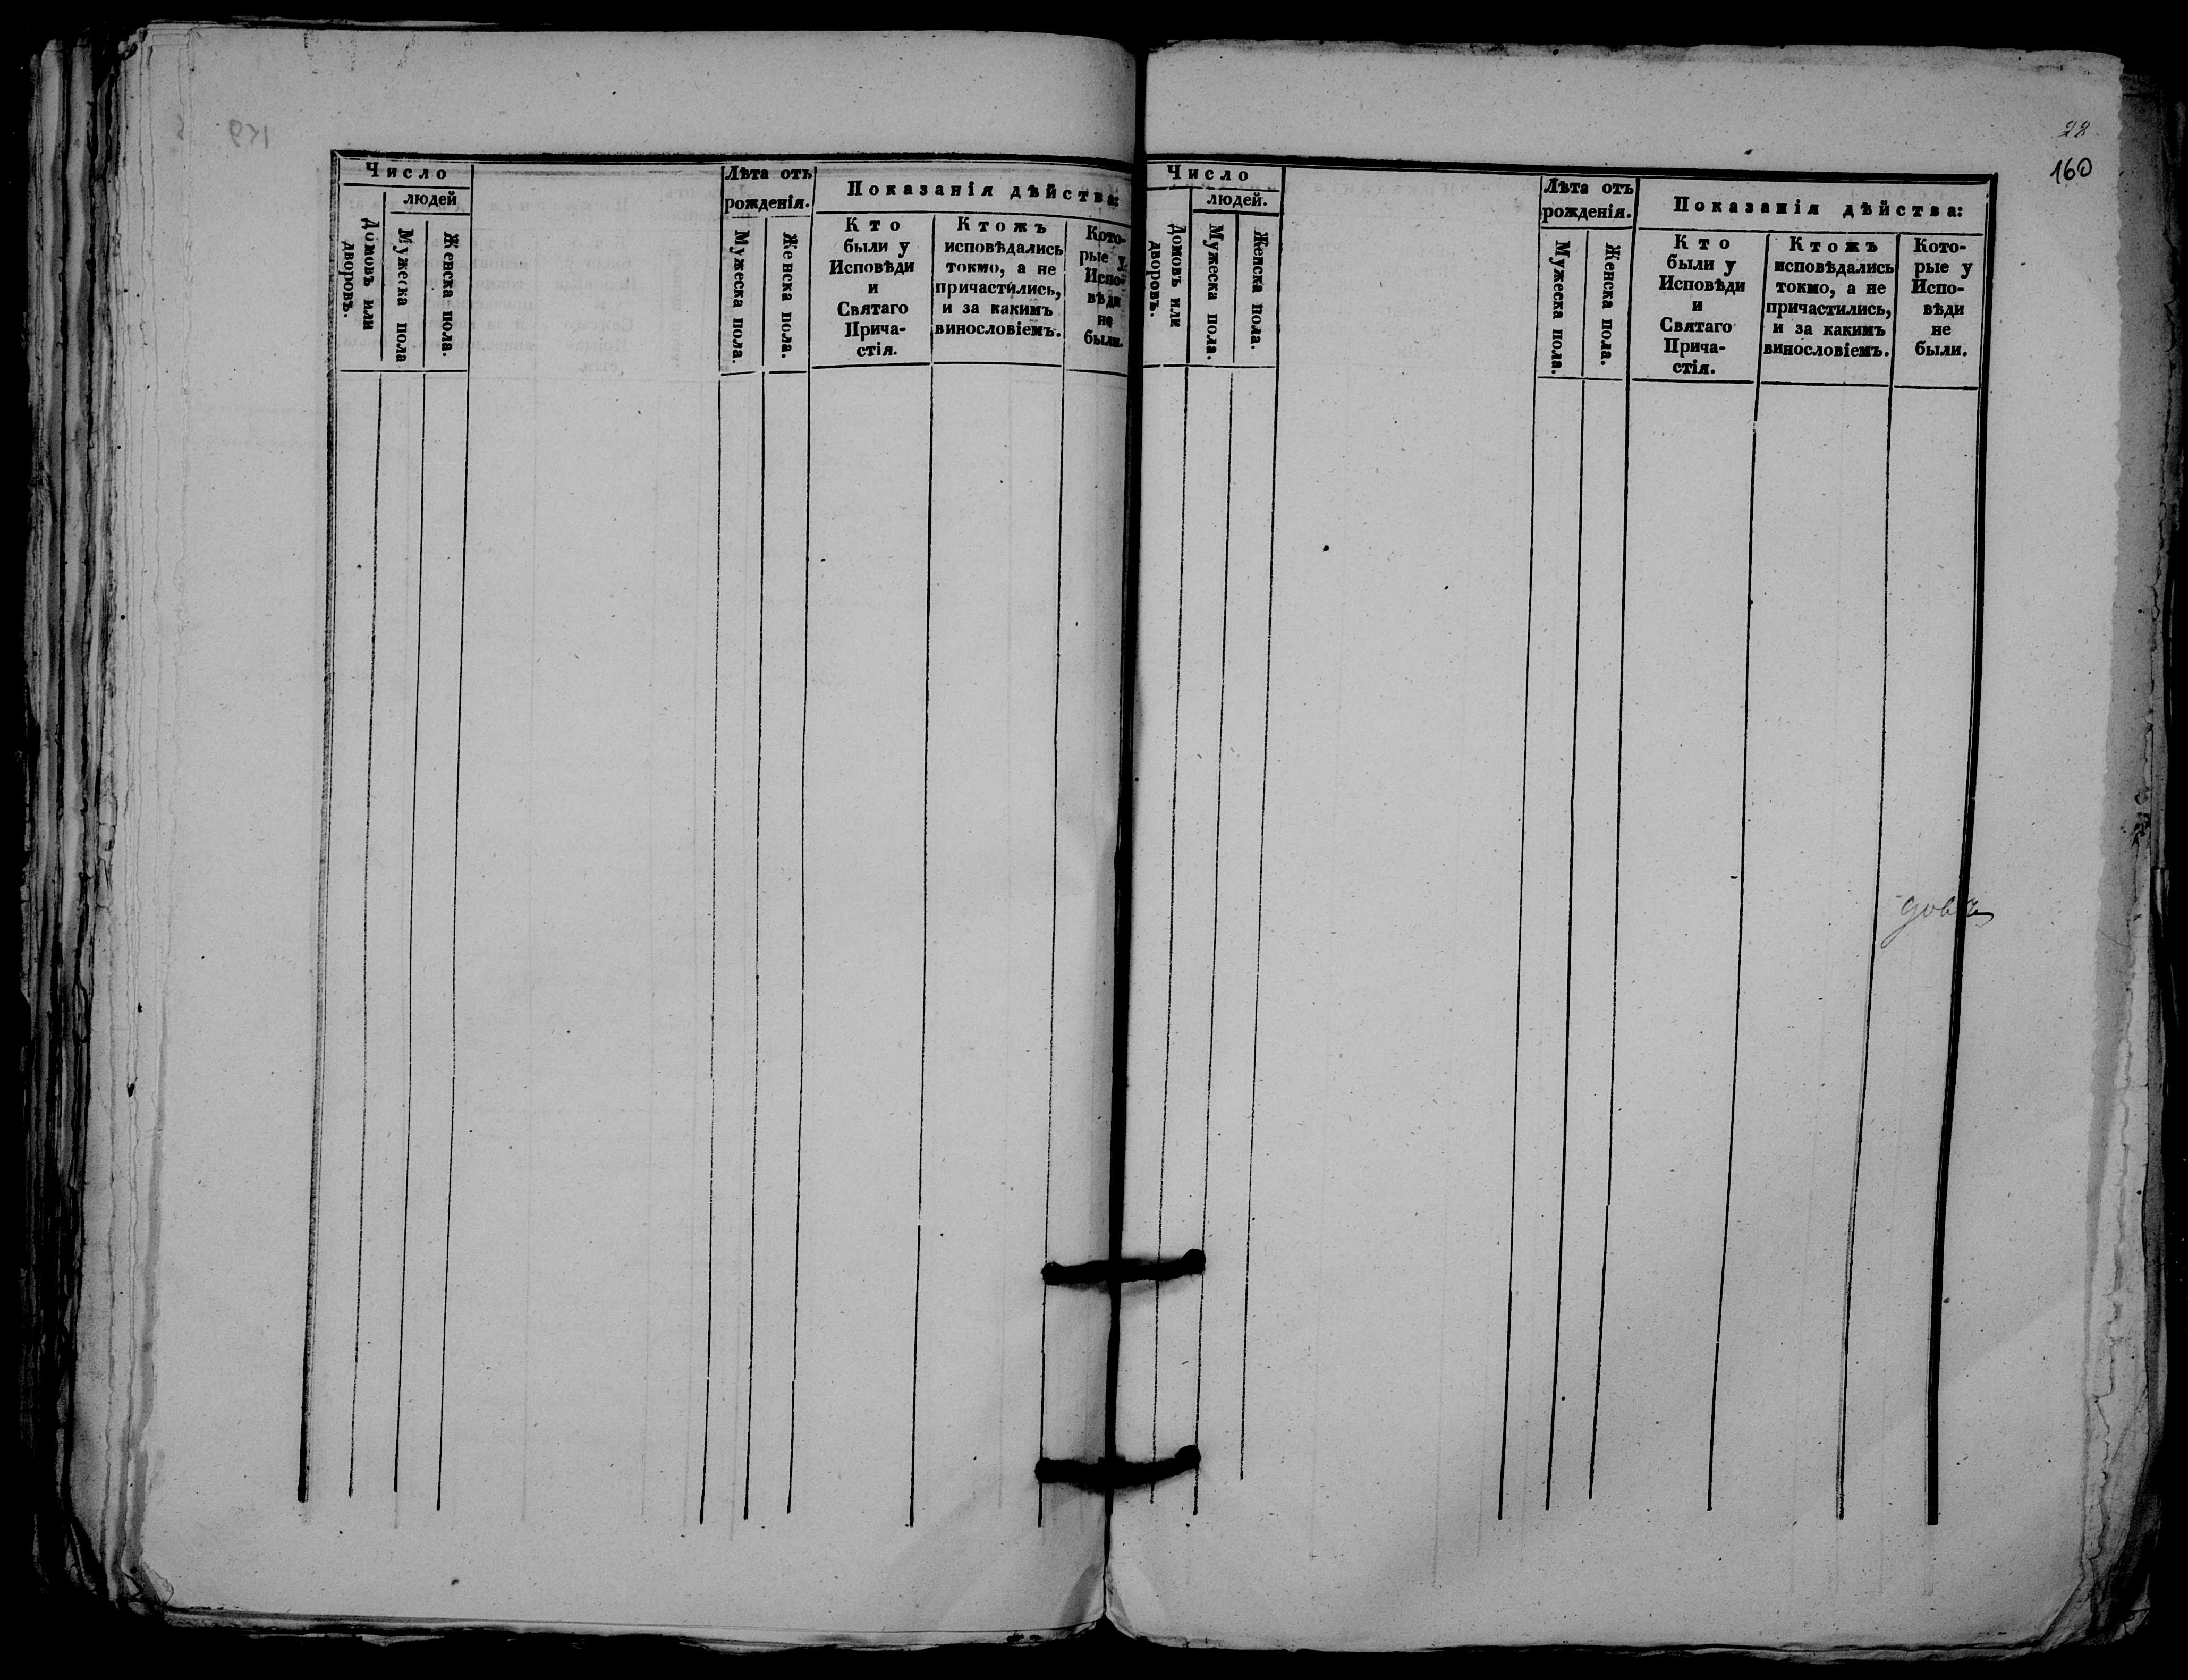 Число
людей
Домовъ или
дворовъ.
Мужеска пола
Женска пола.
Лѣта отъ
рожденія.
Мужеска пола.
Женска пола.
Показанія дѣйства:
Кто
были у
Исповѣди
и
Святаго
Прича-
стія.
Ктожъ
исповѣдались
токмо, а не
причастились,
и за какимъ
винословіемъ.
Кото-
рые у
Испо-
вѣди
не
были.
28
160
Число
людей.
Домовъ или
дворовъ.
Мужеска пола.
Женска пола.
Лѣта отъ
рожденія.
Мужеска пола.
Женска пола.
Показанія дѣйства:
Кто
были у
Исповѣди
и
Святаго
Прича-
стія.
Ктожъ
исповѣдались
токмо, а не
причастились,
и за какимъ
винословіемъ.
Кото-
рые у
Испо-
вѣди
не
были.